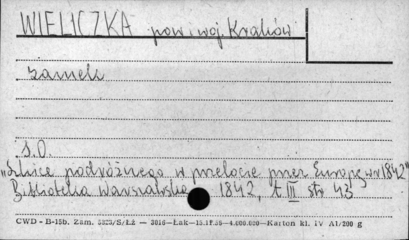 WIELICZKA pow. i woj. Kraków
zamek
S.O.
"Szkice podróżnego w przelocie przez Europę w r 1842"
Biblioteka warszawska 1842, t III str 43
CWD - B-15b. Zam. /S/Łż — 3016 — Łak — 4.000.000 — Karton kl. IV A1/200 g